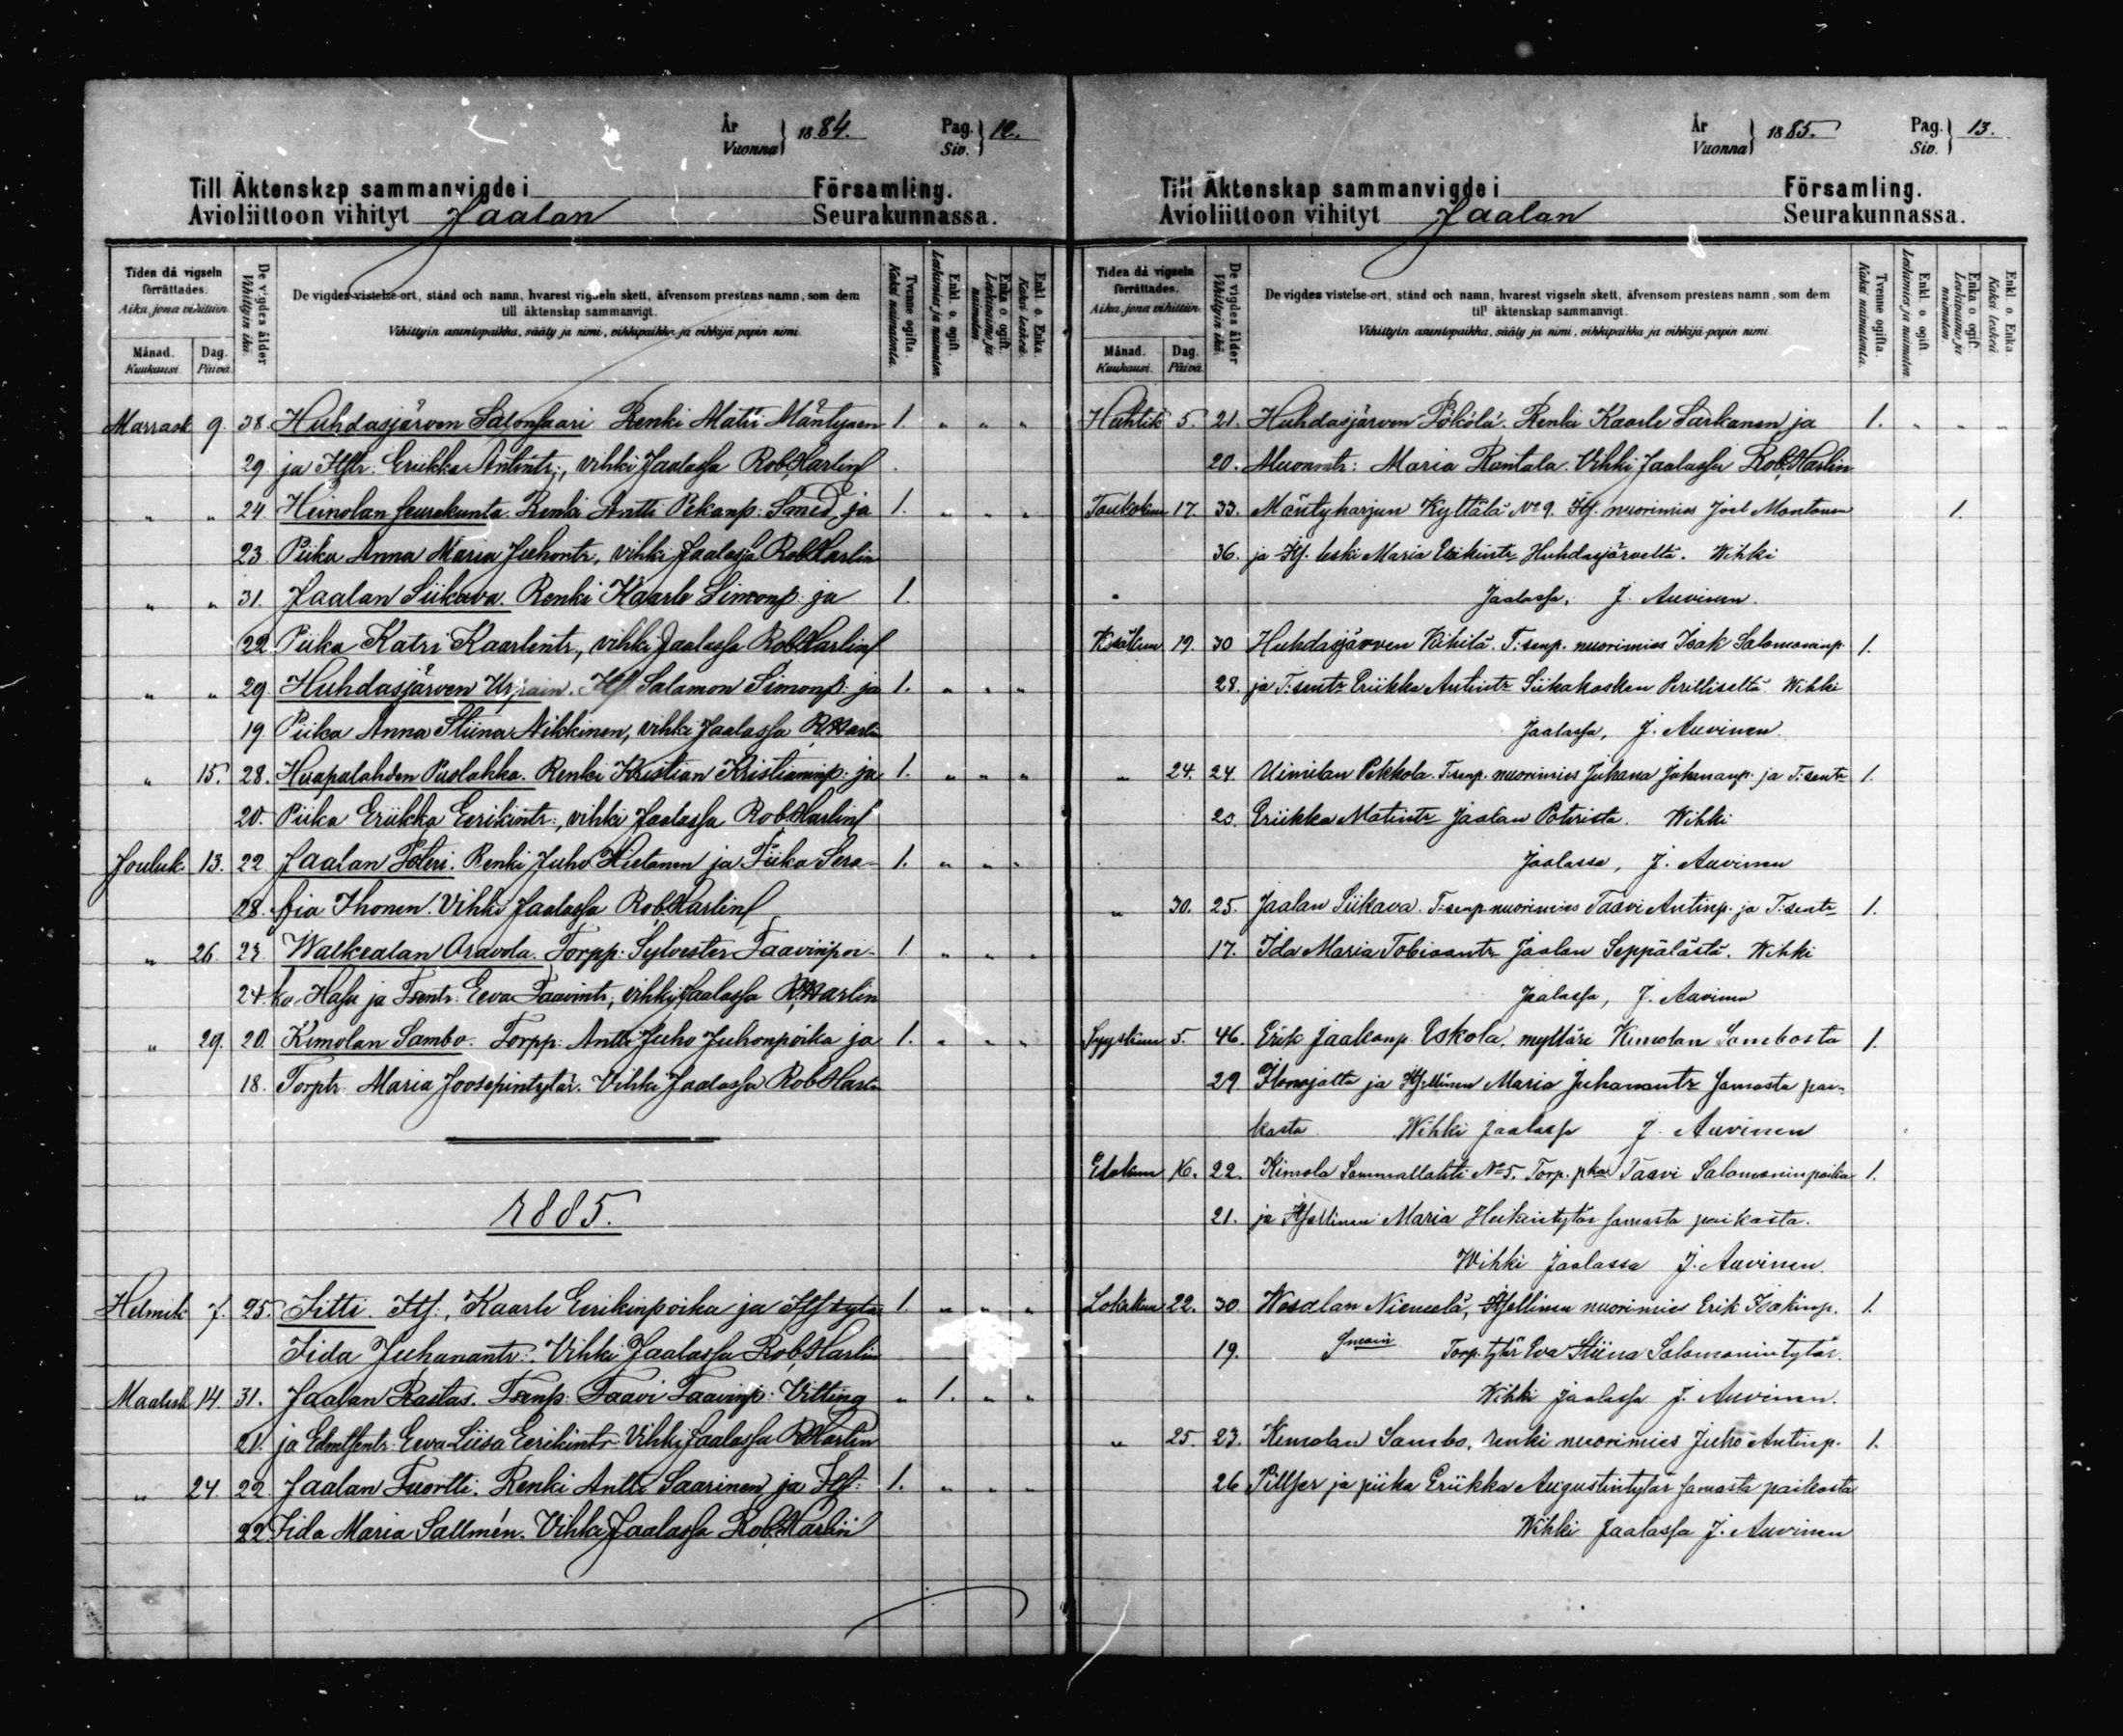 År Vuonna 1884. Pag. Siv. 12.
Till Äktenskap sammanvigde i Församling.
Avioliittoon vihityt Jaalan Seurakunnassa.
Tiden då vigseln förrättades. Aika, jona vihittiin.
Månad. Kuukausi. Dag. Päivä.
De vigdes ålder Vihittyin ikä.
De vigdes vistelse-ort, stånd och namn, hvarest vigseln skett, äfvensom prestens namn, som dem till äktenskap sammanvigt.
Vihittyin asuntopaikka, sääty ja nimi, vihkipaikka ja vihkijä-papin nimi.
Tvenne ogifta. Kaksi naimatonta.
Enkl. o. ogift. Leskimies ja naimaton.
Enka o. ogift. Leskivaimo ja naimaton.
Enkl. o. Enka. Kaksi leskeä.
Marrask 9. 38. Huhdasjärven Salonsaari Renki Matti Mäntynen 1. " " "
29. ja Itstr: Eriikka Antintr:, vihki Jaalassa Rob. Harlin
" " 24. Heinolan seurakunta. Renki Antti Pekanp: ja 1. " " "
23. Piika Anna Maria Juhontr, vihki Jaalassa Rob Harlin
" " 31. Jaalan Siikava. Renki Kaarle Simonp: ja 1.
22. Piika Katri Kaarlentr., vihki Jaalassa Rob Harlin
" " 29. Huhdasjärven Itf Salamon Simonp: ja 1. " " "
19. Piika Anna Stiina Nikkinen, vihki Jaalassa R. Harlin
" 15. 28. Huapalahden Puolakka. Renki Kristian Kristianinp: ja 1. " " "
20. Piika Eriikka Eerikintr:, vihki Jaalassa Rob. Harlin
Jouluk. 13. 22. Jaalan Poteri. Renki Juho Hietanen ja Piika Sera- 1. " " "
28. fia Ihonen. Vihki Jaalassa Rob. Harlin
" 26. 23. Walkealan Oravola. Torpp: Sylvester Taavinpoi- 1. " " "
24. ka ja Tsentr: Eeva Taavintr, vihki Jaalassa R. Harlin
" 29. 20. Kimolan Sambo. Torpp: Antti Juho Juhonpoika ja 1. " " "
18. Torptr. Maria Joosepintytär. Vihki Jaalassa Rob Harlin
1885.
Helmik 7. 25. Sitti. Itf:, Kaarle Eerikinpoika ja Itf tytär 1. " " "
Iida Juhanantr:. Vihki Jaalassa Rob. Harlin
Maalisk 14. 31. Jaalan Rastas. Tsenp: Taavi Taavinp: Vitting " 1. " "
21. ja Eeva Liisa Eerikintr: Vihki Jaalassa R. Harlin
" 24. 22. Jaalan Tuortti. Renki Antti Saarinen ja Itf: 1. " " "
22. Iida Maria Sallmén. Vihki Jaalassa Rob. Harlin
År Vuonna 1885. Pag. Siv. 13.
Till Äktenskap sammanvigde i Församling.
Avioliittoon vihityt Jaalan Seurakunnassa.
Tiden då vigseln förrättades. Aika, jona vihittiin.
Månad. Kuukausi. Dag. Päivä.
De vigdes ålder Vihittyin ikä.
De vigdes vistelse-ort, stånd och namn, hvarest vigseln skett, äfvensom prestens namn, som dem till äktenskap sammanvigt.
Vihittyin asuntopaikka, sääty ja nimi, vihkipaikka ja vihkijä-papin nimi.
Tvenne ogifta. Kaksi naimatonta.
Enkl. o. ogift. Leskimies ja naimaton.
Enka o. ogift. Leskivaimo ja naimaton.
Enkl. o. Enka. Kaksi leskeä.
Huhtik 5. 21. Huhdasjärven Pökölä. Renki Kaarle Särkanen ja 1. " " "
20. Maria Rantala. Vihki Jaalassa Rob. Harlin
Toukokuu 17. 33. Mäntyharjun Kyttälä No 9. Itf. nuorimies Joel Montonen 1.
36. ja Itf. leski Maria Erikintr Huhdasjärveltä. Wihki
Jaalassa, J. Auvinen.
Kesäkuu 19. 30 Huhdasjärven Kihilä. T:senp. nuorimies Isak Salomoninp. 1.
28. ja T:sentr Eriikka Antintr Siikakosken Perilliseltä. Wihki
Jaalassa, J. Auvinen.
" 24. 24. Uimilan Pekkola. T:senp. nuorimies Juhana Juhananp. ja T:sentr 1.
20. Eriikka Matintr Jaalan Poterista. Wihki
Jaalassa, J. Auvinen
" 30. 25. Jaalan Siikava. T:senp. nuorimies Taavi Antinp. ja T:sentr 1.
17. Ida Maria Tobiaantr Jaalan Seppälästä. Wihki
Jaalassa, J. Auvinen
Syyskuu 5. 46. Erik Jaakonp. Eskola, mylläri Kimolan Sambosta 1.
29. ja Itsellinen Maria Juhanantr samasta pai-
kasta Wihki Jaalassa J. Auvinen
Elokuu 16. 22. Kimola Sammallahti No 5. Torp. pka Taavi Salomoninpoika 1.
21. ja Itsellinen Maria Heikintytär samasta paikasta.
Wihki Jaalassa J. Auvinen.
Lokakuu 22. 30. Wesalan Niemelä, Itsellinen nuorimies Erik Isakinp. 1.
19. Torp. tytär Eva Stiina Salomonintytär.
Wihki Jaalassa J. Auvinen.
" 25. 23. Kimolan Sambo, renki nuorimies Juho Antinp. 1.
26 ja piika Eriikka Augustintytär samasta paikasta
Wihki Jaalassa J. Auvinen